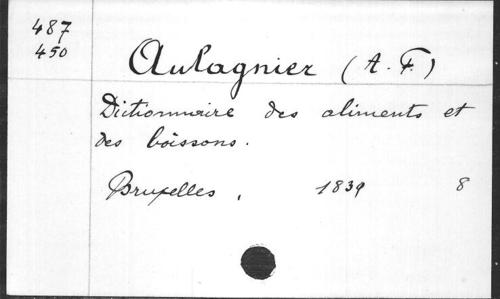 487
450
Aulagnier (A. F.)
Dictionnaire des aliments et
des boissons.
Bruxelles, 1839 8